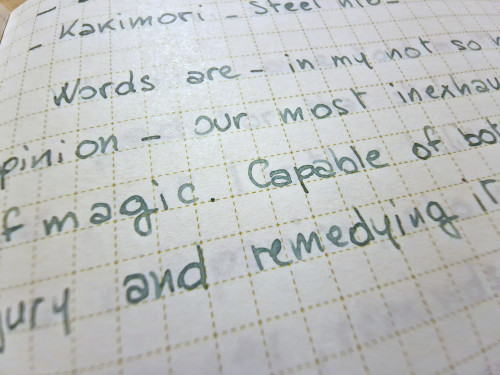 - Kakimori - Steel nib
Words are - in my not so
pinion - our most inexhau
f magic. Capable of bot
jury and remedying it